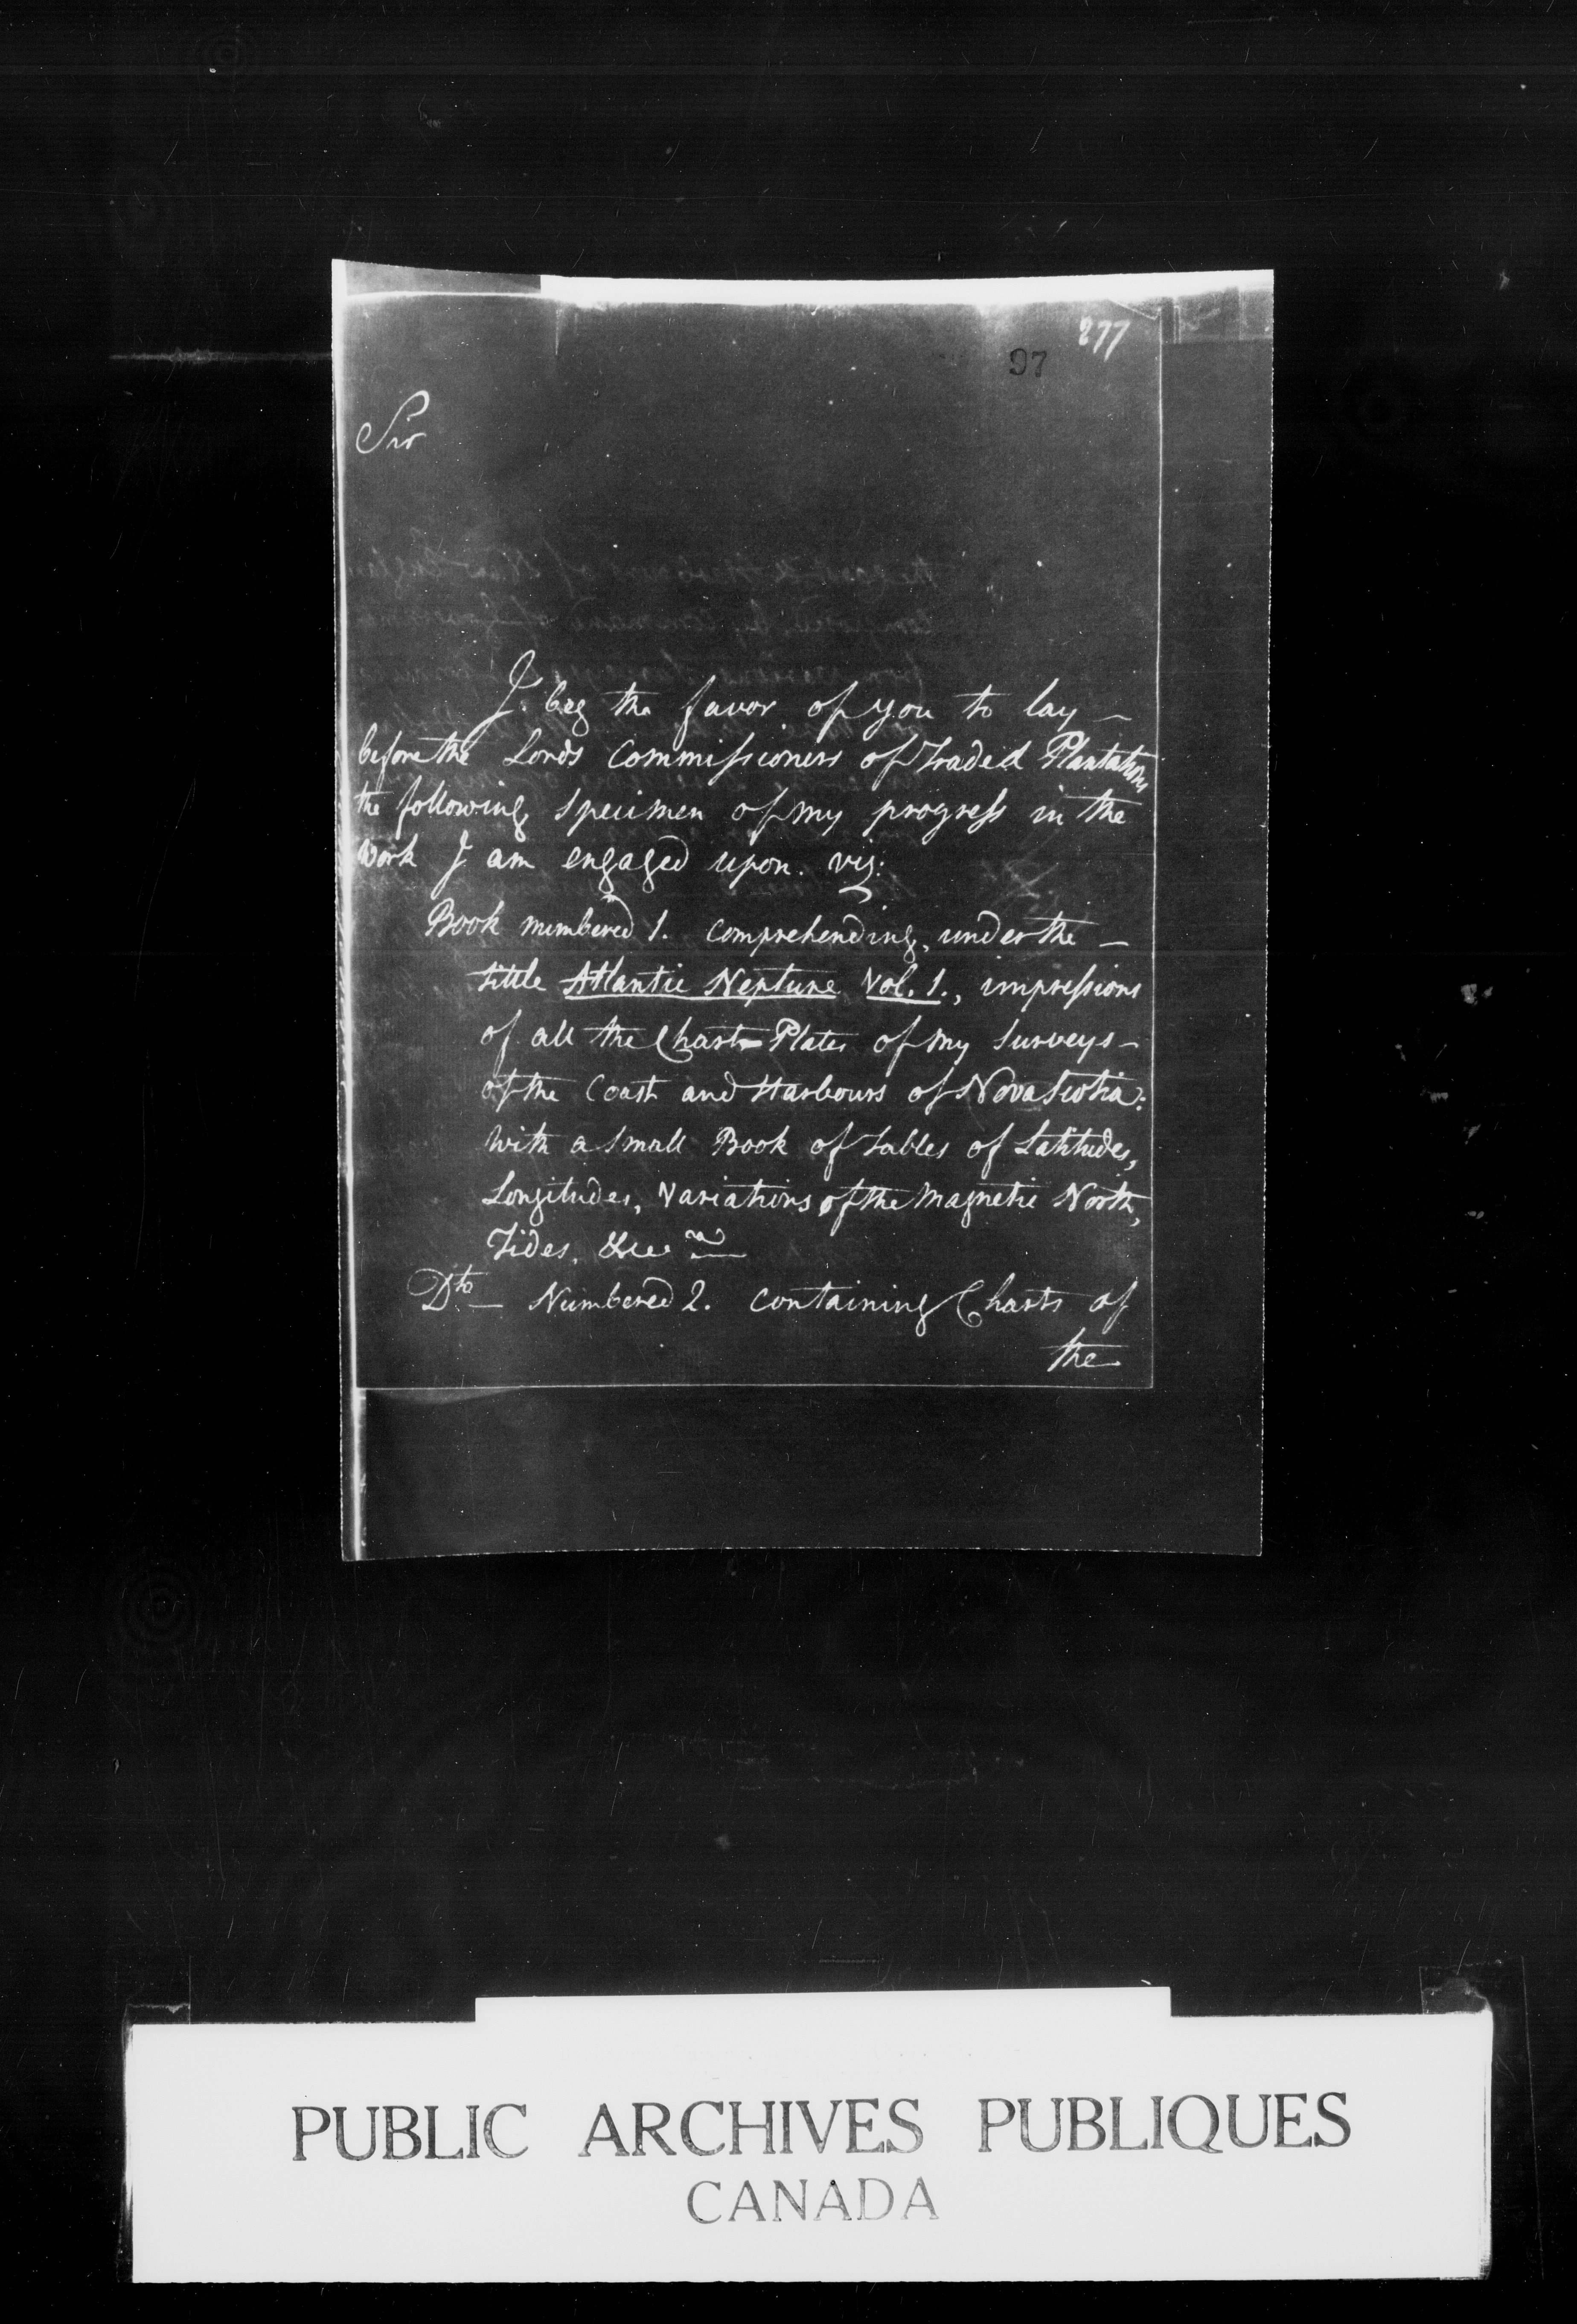 277
97
Sir
I beg the favor of you to lay –
before the Lords Commissioners of Trade & Plantations
the following specimen of my progress in the
Work I am engaged upon. viz:
Book numbered 1. comprehending, under the –
tittle Atlantic Neptune Vol. 1., impressions
of all the Chart Plates of my Surveys –
of the Coast and Harbours of Nova Scotia:
with a small Book of Tables of Latitudes,
Longitudes, Variations of the Magnetic North,
Tides, &ca.
Dto – Numbered 2. containing Charts of
the
PUBLIC ARCHIVES PUBLIQUES
CANADA